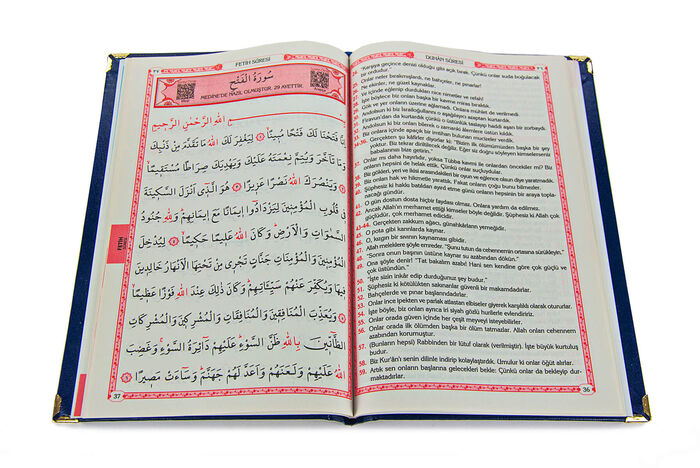 FETİH SÛRESİ
٣٧
سُورَةُ الْفَتْحِ
MEDİNE'DE NAZİL OLMUŞTUR, 29 AYETTİR.
اِنَّا فَتَحْنَا لَكَ فَتْحًا مُب۪ينًاۙ ﴿١﴾ لِيَغْفِرَ لَكَ اللّٰهُ مَا تَقَدَّمَ مِنْ ذَنْبِكَ
وَمَا تَاَخَّرَ وَيُتِمَّ نِعْمَتَهُ عَلَيْكَ وَيَهْدِيَكَ صِرَاطًا مُسْتَق۪يمًاۙ
﴿٢﴾ وَيَنْصُرَكَ اللّٰهُ نَصْرًا عَز۪يزًا ﴿٣﴾ هُوَ الَّذ۪ٓي اَنْزَلَ السَّك۪ينَةَ
ف۪ي قُلُوبِ الْمُؤْمِن۪ينَ لِيَزْدَادُٓوا ا۪يمَانًا مَعَ ا۪يمَانِهِمْۜ وَلِلّٰهِ جُنُودُ
السَّمٰوَاتِ وَالْاَرْضِۜ وَكَانَ اللّٰهُ عَل۪يمًا حَك۪يمًاۙ ﴿٤﴾ لِيُدْخِلَ
الْمُؤْمِن۪ينَ وَالْمُؤْمِنَاتِ جَنَّاتٍ تَجْر۪ي مِنْ تَحْتِهَا الْاَنْهَارُ خَالِد۪ينَ
ف۪يهَا وَيُكَفِّرَ عَنْهُمْ سَيِّـَٔاتِهِمْۜ وَكَانَ ذٰلِكَ عِنْدَ اللّٰهِ فَوْزًا عَظ۪يمًاۙ
﴿٥﴾ وَيُعَذِّبَ الْمُنَافِق۪ينَ وَالْمُنَافِقَاتِ وَالْمُشْرِك۪ينَ وَالْمُشْرِكَاتِ
الظَّٓانّ۪ينَ بِاللّٰهِ ظَنَّ السَّوْءِۜ عَلَيْهِمْ دَٓائِرَةُ السَّوْءِۚ وَغَضِبَ
اللّٰهُ عَلَيْهِمْ وَلَعَنَهُمْ وَاَعَدَّ لَهُمْ جَهَنَّمَۜ وَسَٓاءَتْ مَص۪يرًا ﴿٦﴾
37
FETİH
DUHÂN SÛRESİ
٣٦
"Karşıya geçince denizi olduğu gibi açık bırak. Çünkü onlar suda boğulacak
bir ordudur."
Onlar neler bırakmışlardı, ne bahçeler, ne pınarlar!
Ne ekinler, ne güzel kaynaklar!
Ve içinde eğlenip durdukları nice nimetler ve refah!
İşte böylece biz onları başka bir kavme miras bıraktık.
Gök ve yer onların üzerine ağlamadı. Onlara mühlet de verilmedi.
Andolsun ki biz İsrailoğullarını o aşağılayıcı azaptan kurtardık.
Firavun'dan da kurtardık çünkü o üstünlük taslayıp haddi aşan bir zorbaydı.
Andolsun ki biz onları bilerek o zamanki âlemlere üstün kıldık.
Biz onlara içinde apaçık bir imtihan bulunan mucizeler verdik.
34-36. Gerçekten şu kâfirler diyorlar ki: "Bizim ilk ölümümüzden başka bir şey
yoktur. Biz tekrar diriltilecek değiliz. Eğer siz doğru söyleyen kimselerseniz
babalarımızı bize getirin."
Onlar mı daha hayırlıdır, yoksa Tübba kavmi ile onlardan öncekiler mi? Biz
onların hepsini de helak ettik. Çünkü onlar suçluydular.
Biz gökleri, yeri ve ikisi arasındakileri bir oyun ve eğlence olsun diye yaratmadık.
39. Biz onları hak ve hikmetle yarattık. Fakat onların çoğu bunu bilmezler.
40. Şüphesiz ki hakkı batıldan ayırd etme günü onların hepsinin bir arada topla-
nacağı gündür.
41. O gün dostun dosta hiçbir faydası olmaz. Onlara yardım da edilmez.
42. Ancak Allah'ın merhamet ettiği kimseler böyle değildir. Şüphesiz ki Allah çok
güçlüdür, çok merhamet edicidir.
43-44. Gerçekten zakkum ağacı, günahkârların yemeğidir.
45. O pota gibi karınlarda kaynar.
46. O, kızgın bir sıvının kaynaması gibidir.
47. Allah meleklere şöyle emreder. "Şunu tutun da cehennemin ortasına sürükleyin."
48. "Sonra onun başının üstüne kaynar su azabından dökün."
49. Ona şöyle denir! "Tat bakalım azabı! Hani sen kendine göre çok güçlü ve
çok üstündün."
50. "İşte sizin inkâr edip durduğunuz şey budur."
51. Şüphesiz ki kötülükten sakınanlar güvenli bir makamdadırlar.
52. Bahçelerde ve pınar başlarındadırlar.
53. Onlar ince ipekten ve parlak atlastan elbiseler giyerek karşılıklı olarak otururlar.
54. İşte böyle, biz onları ayrıca iri siyah gözlü hurilerle evlendiririz.
55. Onlar orada güven içinde her çeşit meyveyi isteyebilirler.
56. Onlar orada ilk ölümden başka bir ölüm tatmazlar. Allah onları cehennem
azabından korumuştur.
57. (Bunların hepsi) Rabbinden bir lütuf olarak (verilmiştir). İşte büyük kurtuluş
budur.
58. Biz Kur'ân'ı senin dilinle indirip kolaylaştırdık. Umulur ki onlar öğüt alırlar.
59. Artık sen onların başlarına gelecekleri bekle: Çünkü onlar da bekleyip dur-
maktadırlar.
36